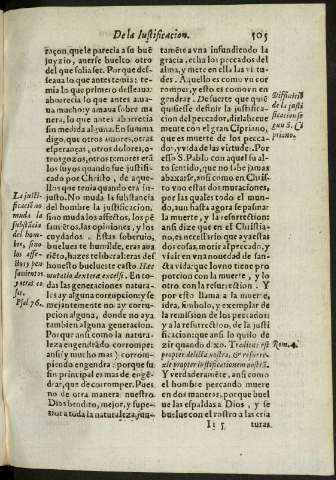 De la Iustificacion. 505
raçon, que le parecia a su buẽ
juyzio, auerse buelto otro
del que solia ser. Porque des-
seaua lo que antes temia; te-
mia lo que primero desseaua:
aborrecia lo que antes ama-
ua mucho; y amaua sobre ma
nera, lo que antes aborrecia
sin medida alguna. En summa
digo, que otros amores, otras
esperanças, otros dolores, o-
tros gozos, otros temores erã
los suyos quando fue justifi-
cado por Christo, de aque-
llos que tenia quando era in-
justo. No muda la substancia
del hombre la justificacion,
sino muda los affectos, los pẽ
samiẽtos, las opiniones, y los
cuydados. Estas soberuio,
buelues te humilde, eras aua
riẽto, hazes te liberal: eras des
honesto buelueste casto. Hæc
mutatio dexteræ excelsi. En to-
das las generaciones natura-
les ay alguna corrupcion y se
mejantemente no ay corru-
pcion alguna, donde no aya
tambien alguna generacion.
Porque ansi como la natura-
leza engendrãdo corrompe:
ansi (y mucho mas) corrom-
piendo engendra: porque su
fin principal es mas de engẽ-
drar, que de corromper. Pues
no de otra manera nuestro
Dios bendito, mejor, y supe-
rior a toda la naturaleza, jun-
La justi-
ficaciõ no
muda la
substãcia
del hom-
bre, sino
los affe-
ctos y pen
samientos
y otras co
sas.
Psal. 76.
tamẽte avna insundiendo la
gracia, echa los peccados del
alma, y mete en ella las virtu-
des. Aquello es como vn cor
romper, y esto es como vn en
gendrar. De suerte que quiẽ
quisiesse definir la justificaciõ
del peccador, diria bec̃
que es muerte de los pecca-
dor, y vida de las virtudes. Por
esso S. Pablo con aquel su al-
to sentido, que no sabe jamas
abaxarse, vnio como en Chris-
to vno estas dos mutaciones,
por las quales todo el mun-
do, aun hasta agora se pasma:
la muerte, y la resurrection:
ansi dize que en el Christia-
no, es necessario que aya estas
dos cosas, morir al peccado, y
viuir en vna nouedad de san-
cta vida: que lo vno tiene pro
porcion con la muerte, y lo
otro con la resurrection. Y
por esto llama a la muerte,
idea, simbolo, y exemplar de
la remission de los peccados:
y a la resurrection, de la justi
ficacion: que ansi lo quiso de
zir quando dixo. Traditus est
propter delicta nostra, & resurre-
xit propter iustificationem nostrã.
Y verdaderamẽte, ansi como
el hombre pecando muere
en dos maneras, porque buel
ue las espaldas a Dios, y se
buelue con el rostro a las cria
Iı 5 turas.
Rom. 4.